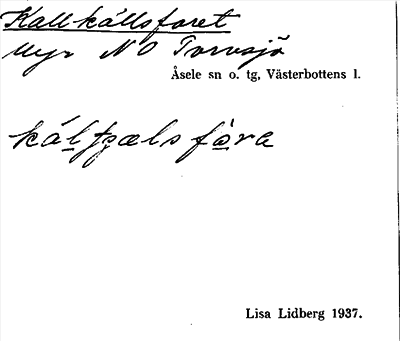 Kallkällsforet
Myr NO Torvsjö
Åsele sn o. tg, Västerbottens l.
Lisa Lidberg 1937.